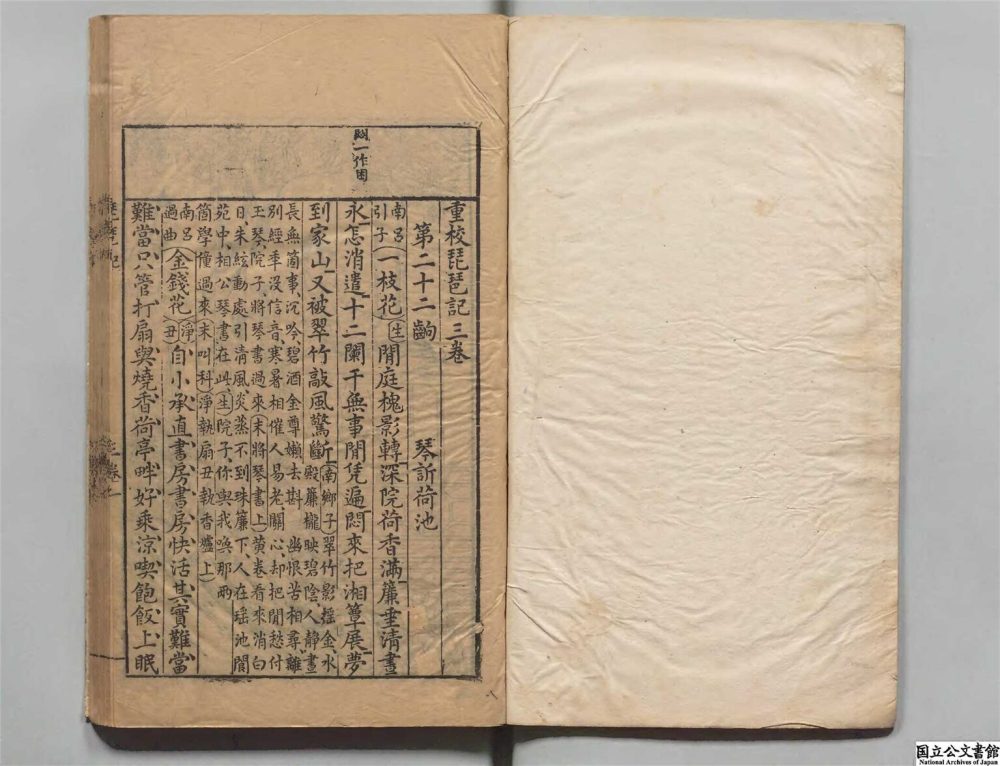 重校琵琶記三卷
第二十二齣　琴訴荷池
南呂引子一枝花生閒庭槐影轉深院荷香滿簾垂清晝
永怎消遣十二闌干無事閒凭遍悶來把湘簟展夢
到家山又被翠竹敲風驚斷南鄉子翠竹影搖金水
殿簾櫳映碧陰人靜晝
長無箇事沉吟碧酒金尊嬾去斟　幽恨苦相尋離
別經年沒信音寒暑相催人易老關心却把閒愁付
玉琴院子將琴書過來末將琴書上黃卷看來消白
日朱絃動處引清風炎蒸不到珠簾下人在瑤池閬
苑中相公琴書在此生院子你與我喚那兩
箇學僮過來末叫科淨執扇丑執香爐上
南呂過曲金錢花淨丑自小承直書房書房快活其實難當
難當只管打扇與燒香荷亭畔好乘涼喫飽飯上眠
一作困
国立公文書館
National Archives of Japan